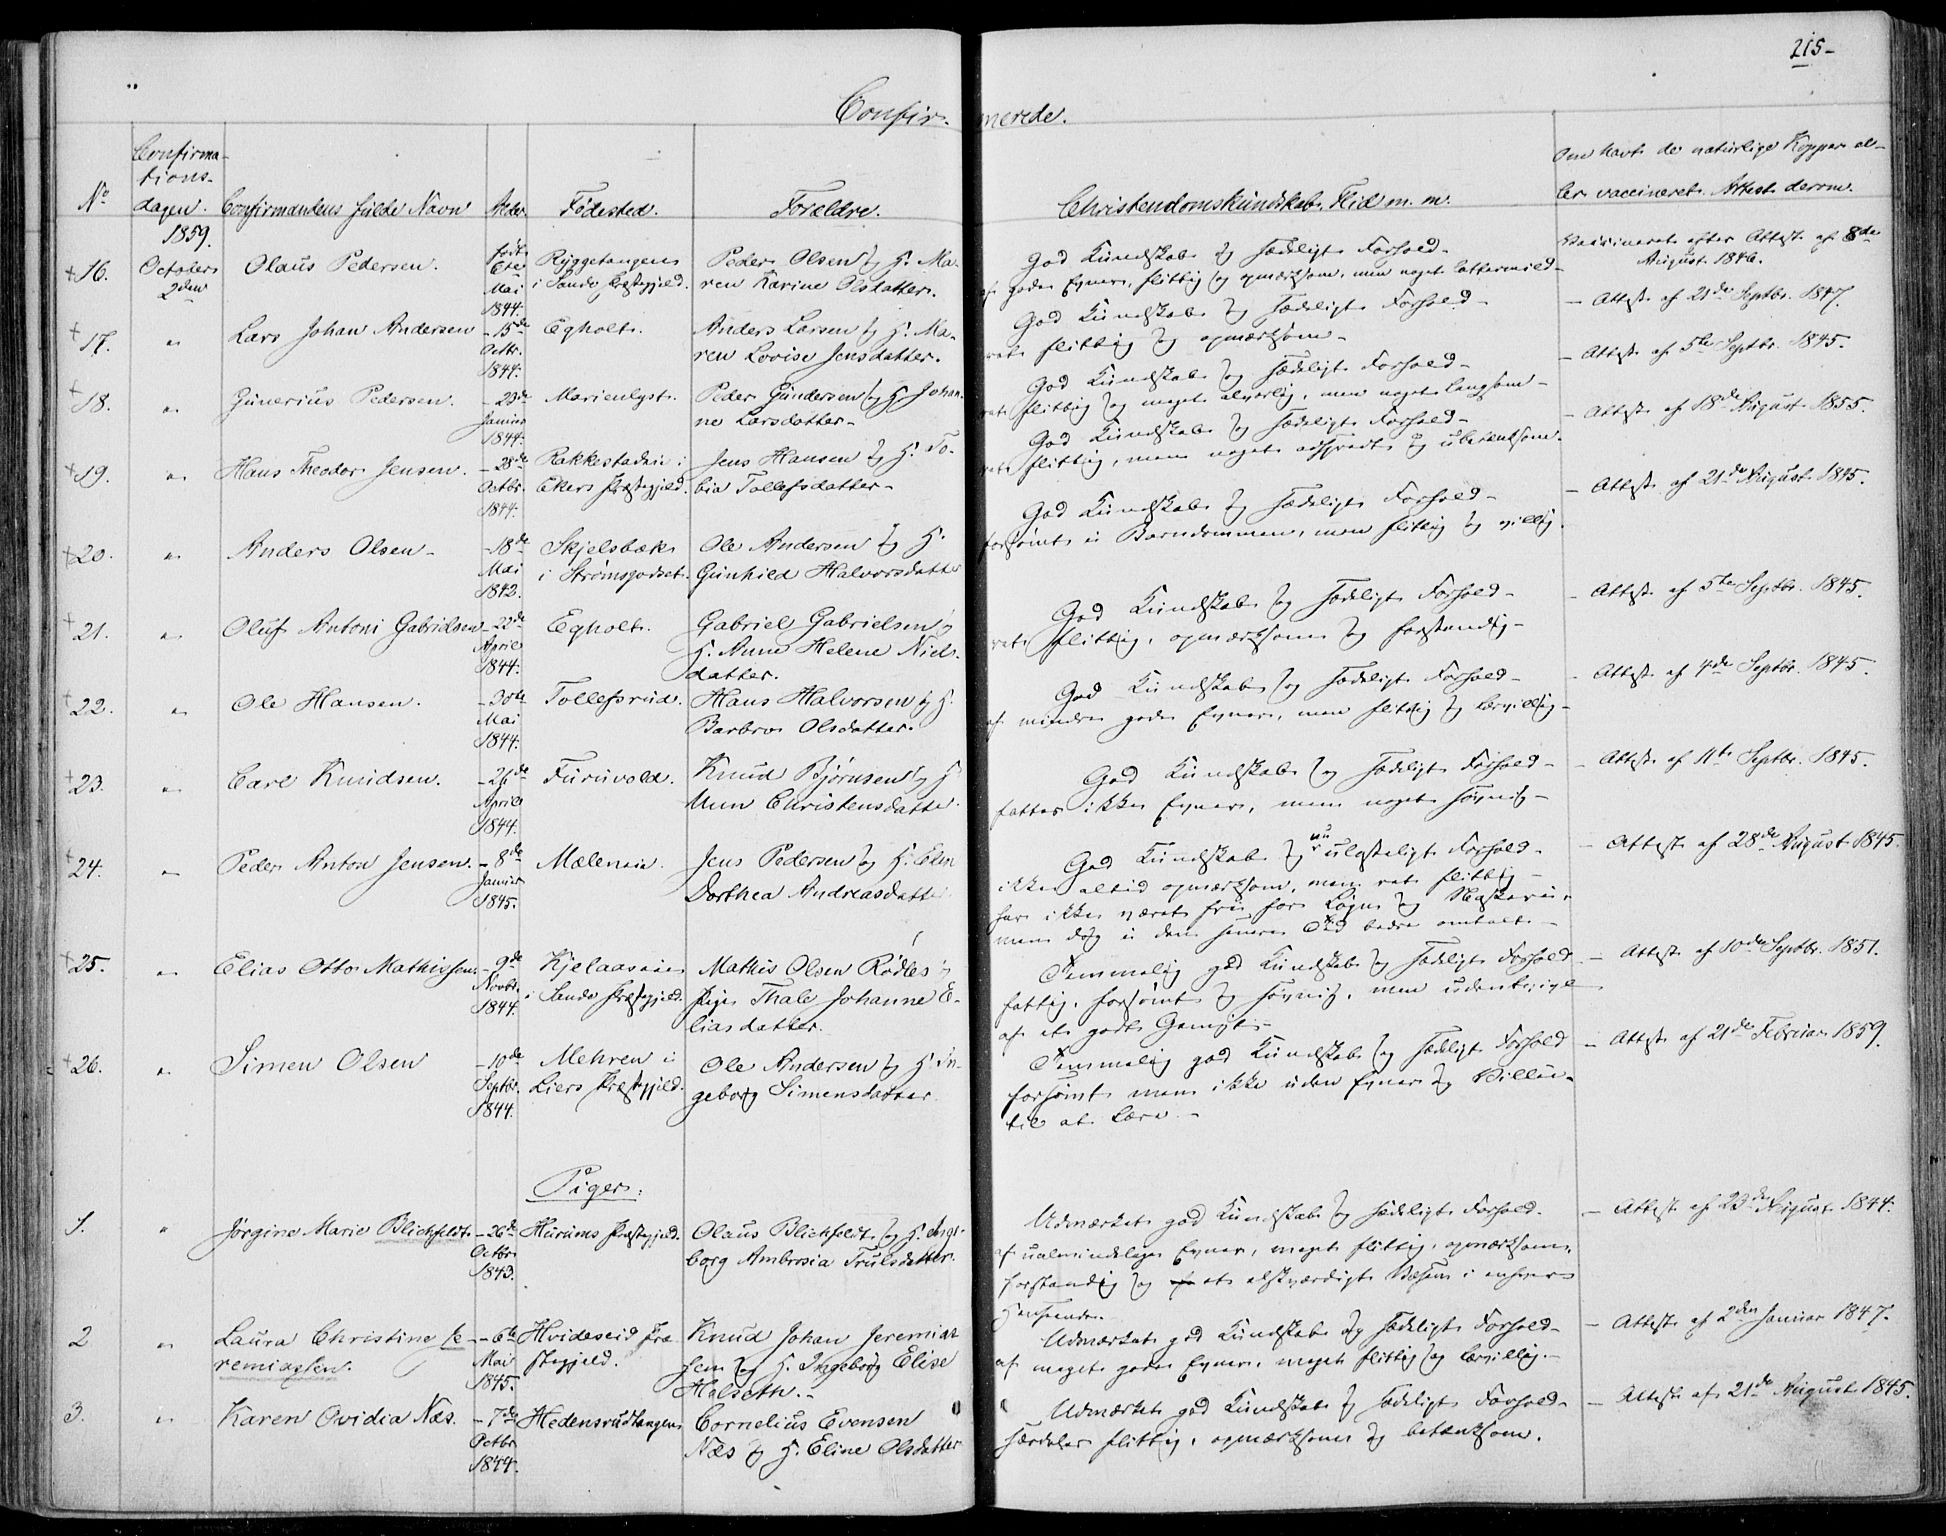 215-
Confir- merede.
No
Confirma-
tions-
dagen.
Confirmandens fulde Navn
Alder.
Fødested.
Forældre.
Christendomskundskab, Flid m. m.
Om havt de naturlige Kopper el-
ler vaccineret. Attest derom.
1859.
+16. October 2den Olaus Pedersen. født 6te Mai 1844. Ryggetangen i Sande Præstegjeld. Peder Olsen og H. Ma-
ren Karine Olsdatter.
God Kundskab og sædeligt Forhold-
af gode Evner, flittig og opmærksom, men noget lattermild-
Vaccineret efter Attest af 8de
August 1846.
+17. " Lars Johan Andersen - 15de Octbr. 1844. Egholt. Anders Larsen og H. Ma-
ren Lovise Jensdatter.
God Kundskab og sædeligt Forhold-
ret flittig og opmærksom-
- Attest af 21de Septbr. 1847.
+18. " Gunerius Pedersen. - 23de Januar 1844. Marienlyst. Peder Gundersen og H. Johan-
ne Larsdatter-
God Kundskab og sædeligt Forhold-
ret flittig og meget alvorlig, men noget langsom-
- Attest af 5te Septbr. 1845.
+19. " Hans Theodor Jensen. - 28de Octbr. 1844. Rakkestadeie i Ekers Præstegjeld. Jens Hansen og H. To-
bia Tollefsdatter-
God Kundskab og sædeligt Forhold-
ret flittig, men noget adspredt og ubetænksom.
- Attest af 18de August 1855.
+20. " Anders Olsen- - 18de Mai 1842. Skjelsbæk i Strømsgodset. Ole Andersen og H.
Gunhild Halvorsdatter
God Kundskab og sædeligt Forhold-
forsømt i Barndommen, men flittig og villig.
- Attest af 21de August 1845.
+21. " Oluf Antoni Gabrielsen - 22de April 1844. Egholt. Gabriel Gabrielsen og
H. Anne Helene Niels-
datter.
God Kundskab og sædeligt Forhold-
ret flittig, opmærksom og forstandig-
- Attest af 5te Septbr. 1845.
+22. " Ole Hansen. - 30te Mai 1844. Tollefsrud. Hans Halvorsen og H.
Barbro Olsdatter.
God Kundskab og sædeligt Forhold-
af mindre gode Evner, men flittig og lærvillig-
- Attest af 4de Septbr. 1845.
+23. " Carl Knudsen. - 26de April 1844. Furuvold. Knud Bjørnsen og H
Christensdatter.
God Kundskab og sædeligt Forhold-
fattes ikke Evner, men noget søvnig-
- Attest af 11te Septbr. 1845.
+24. " Peder Anton Jensen. - 8de Januar 1845. Mæleneie. Jens Pedersen og H. Elen
Dorthea Andreasdatter
God Kundskab og nu ulasteligt Forhold-
ikke altid opmærksom, men ret flittig-
har ikke været fri for Løgn og Naskeri,
men dog i den senere Tid bedre omtalt-
- Attest af 28de August 1845.
+25. " Elias Otto Mathissen - 9de Novbr. 1844. Kjelaaseie i Sande Præstegjeld. Mathis Olsen Rødles og
Pige Thale Johanne E-
liasdatter.
Temmelig god Kundskab og sædeligt Forhold
fattig, forsømt og søvnig, men udentvivl
af et godt Gemyt-
- Attest af 10de Septbr. 1851.
+26. " Simen Olsen - 10de Septbr. 1844. Mehren i Liers Præstegjeld. Ole Andersen og H. In-
geborg Simensdatter
Temmelig god Kundskab og sædeligt Forhold
forsømt men ikke uden Evner og Villie
til at lære.-
- Attest af 21de Februar 1859.
Piger.
1. " Jørgine Marie Blichfeldt - 26de Octbr. 1843. Hurums Præstegjeld. Olaus Blichfeldt og H. Inge-
borg Ambrosia Trulsdatter.
Udmærket god Kundskab og sædeligt Forhold-
af ualmindelige Evner, meget flittig, opmærksom,
forstandig og et elskværdigt Væsen i enhver
Henseende.
- Attest af 23de August 1844.
2 " Laura Christine Je-
remiassen. - 6te Mai 1845. Hvideseid Præ-
stegjeld. Knud Johan Jeremias-
sen og H. Ingeborg Elise
Halseth.-
Udmærket god Kundskab og sædeligt Forhold-
af meget gode Evner, meget flittig og lærvillig.-
- Attest af 2den Januar 1847.
3. " Karen Ovidia Næs. - 7de Octbr. 1844. Hedensrudtangen Cornelius Evensen
Næs og H. Eline Olsdatter
Udmærket god Kundskab og sædeligt Forhold-
særdeles flittig, opmærksom og betænksom.
- Attest af 21de August 1845.